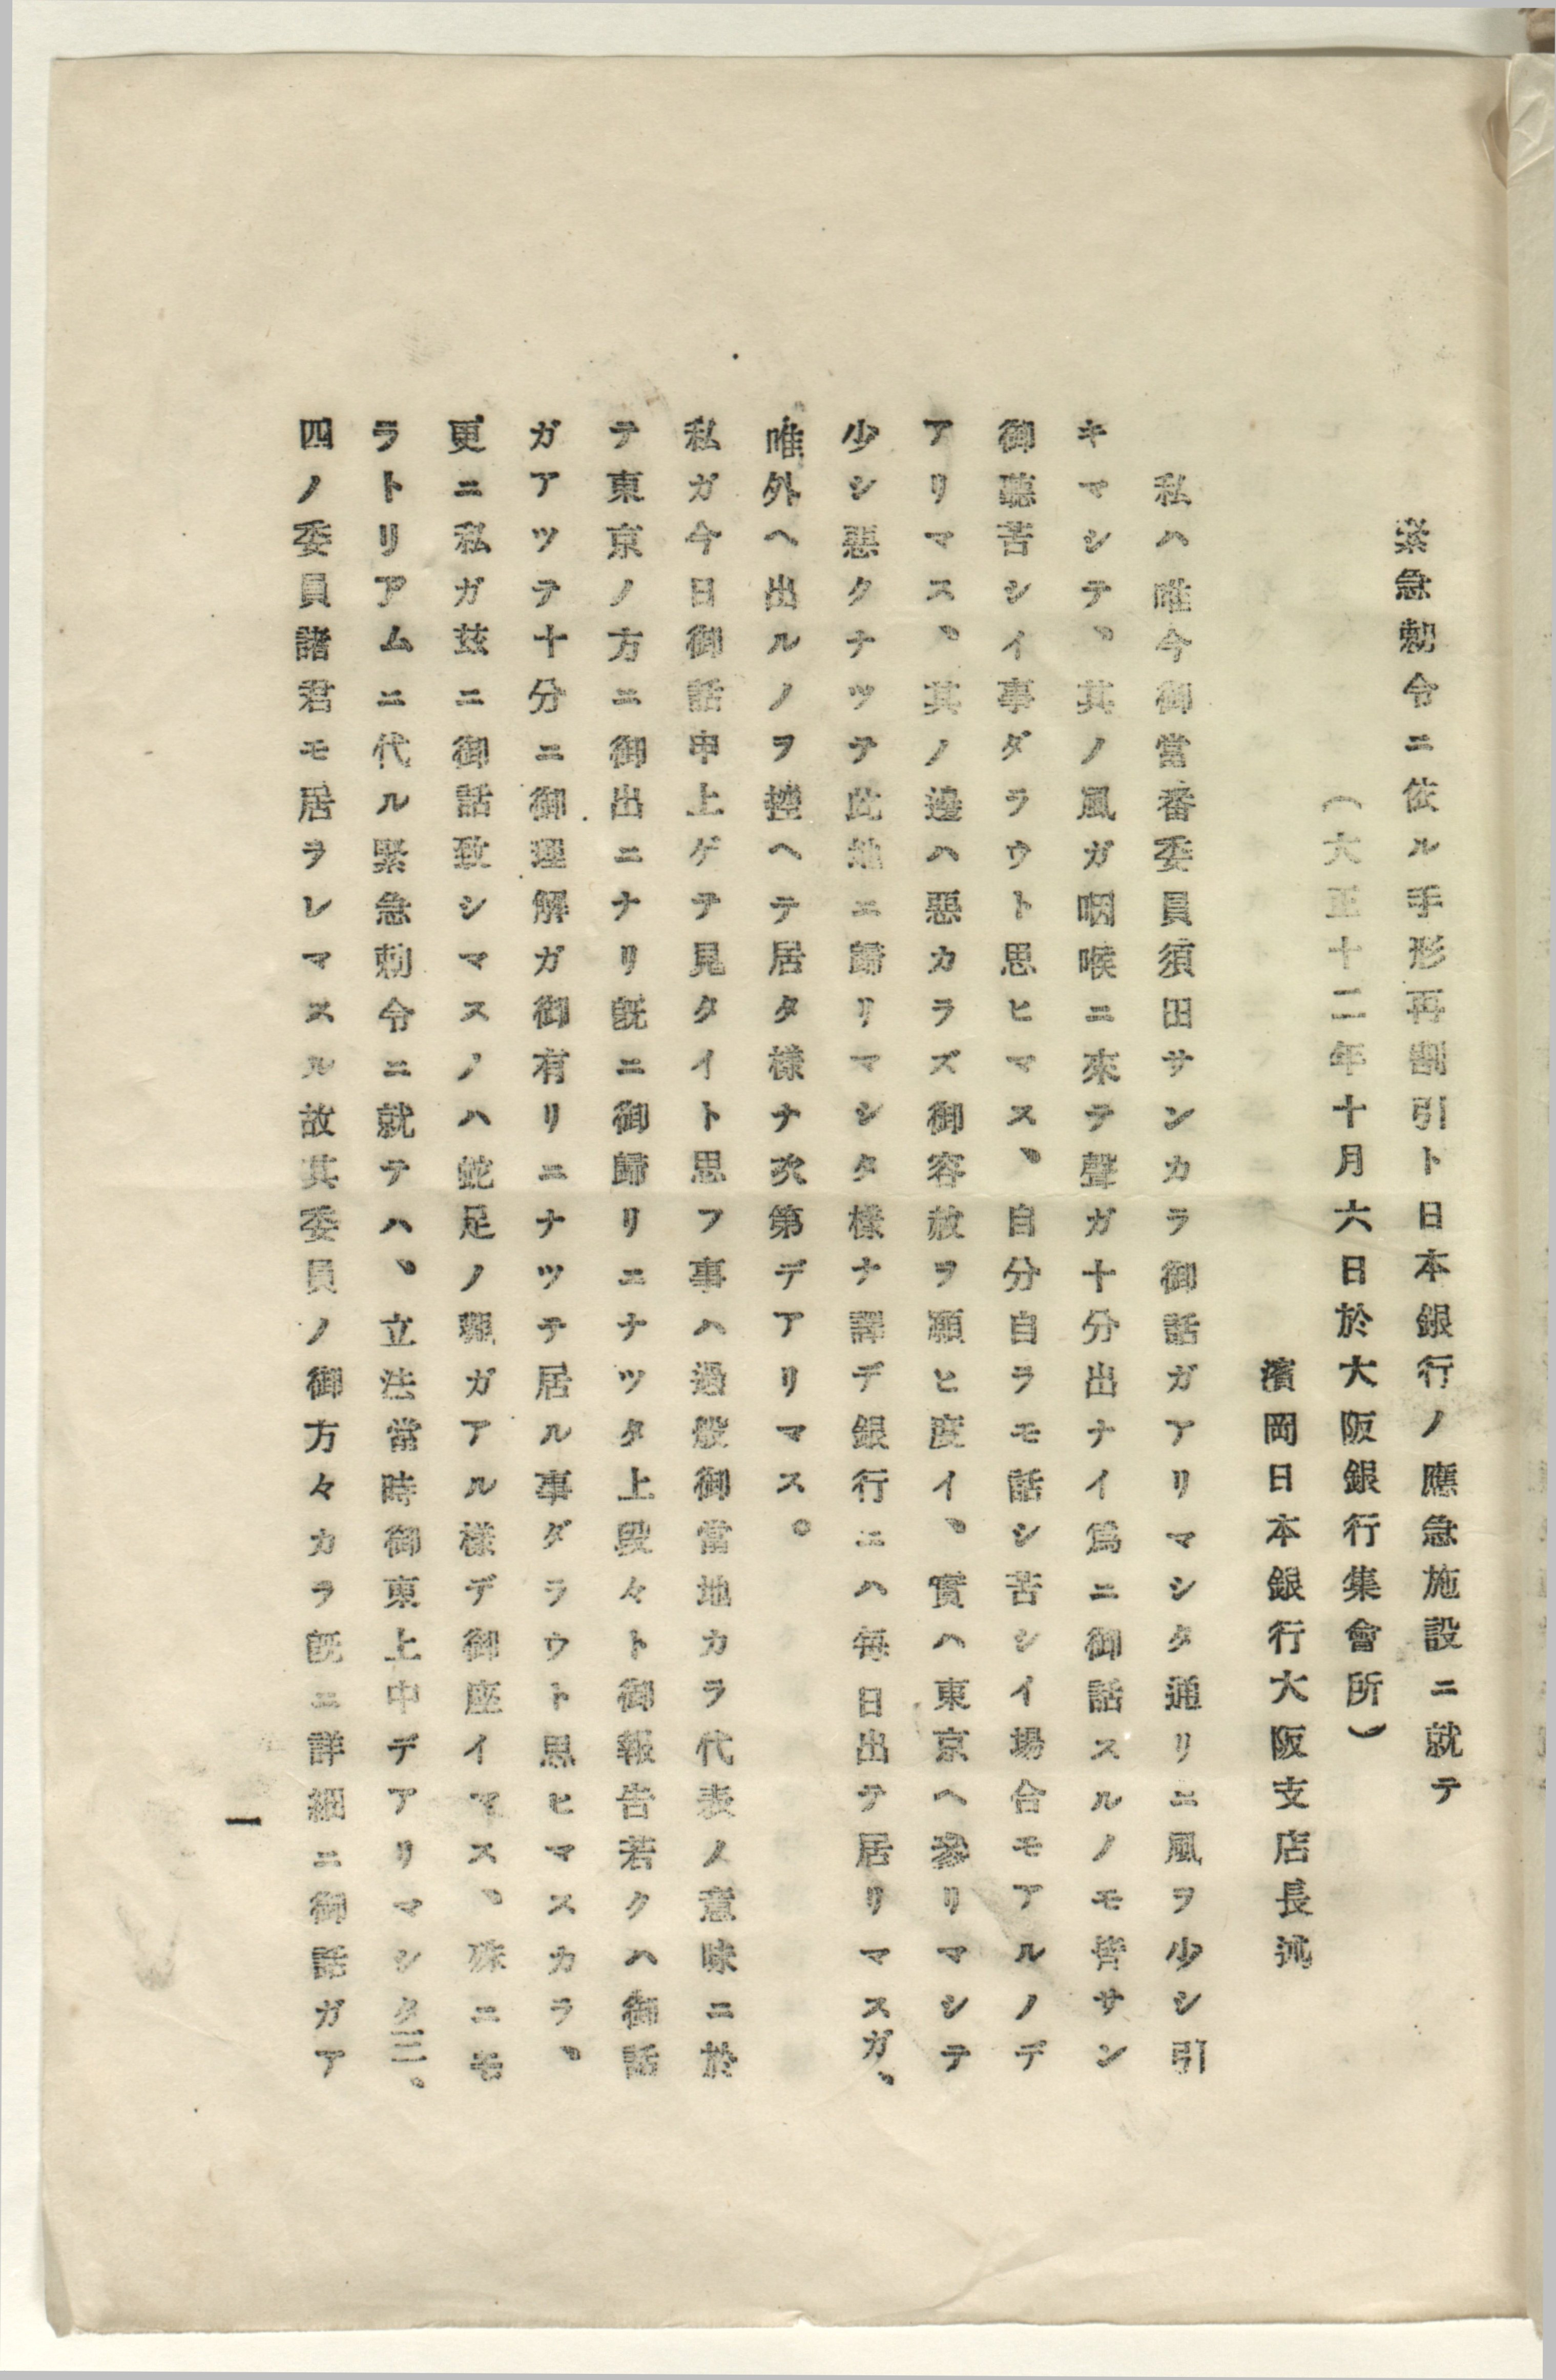 緊急勅令ニ依ル手形再割引ト日本銀行ノ應急施設ニ就テ
（大正十二年十月六日於大阪銀行集會所）
濱岡日本銀行大阪支店長述
私ハ唯今御當番委員須田サンカラ御話ガアリマシタ通リニ風ヲ少シ引
キマシテ、其ノ風ガ咽喉ニ來テ聲ガ十分出ナイ爲ニ御話スルノモ皆サン
御聽苦シイ事ダラウト思ヒマス、自分自ラモ話シ苦シイ場合モアルノデ
アリマス、其ノ邊ハ惡カラズ御容赦ヲ願ヒ度イ、實ハ東京ヘ參リマシテ
少シ惡クナツテ此地ニ歸リマシタ樣ナ譯デ銀行ニハ毎日出テ居リマスガ、
唯外ヘ出ルノヲ控ヘテ居タ樣ナ次第デアリマス。
私ガ今日御話申上ゲテ見タイト思フ事ハ過般御當地カラ代表ノ意味ニ於
テ東京ノ方ニ御出ニナリ既ニ御歸リニナツタ上段々ト御報告若クハ御話
ガアツテ十分ニ御理解ガ御有リニナツテ居ル事ダラウト思ヒマスカラ、
更ニ私ガ玆ニ御話致シマスノハ蛇足ノ觀ガアル樣デ御座イマス、殊ニモ
ラトリアムニ代ル緊急勅令ニ就テハ、立法當時御東上中デアリマシタ三、
四ノ委員諸君モ居ラレマスル故其委員ノ御方々カラ既ニ詳細ニ御話ガア
一